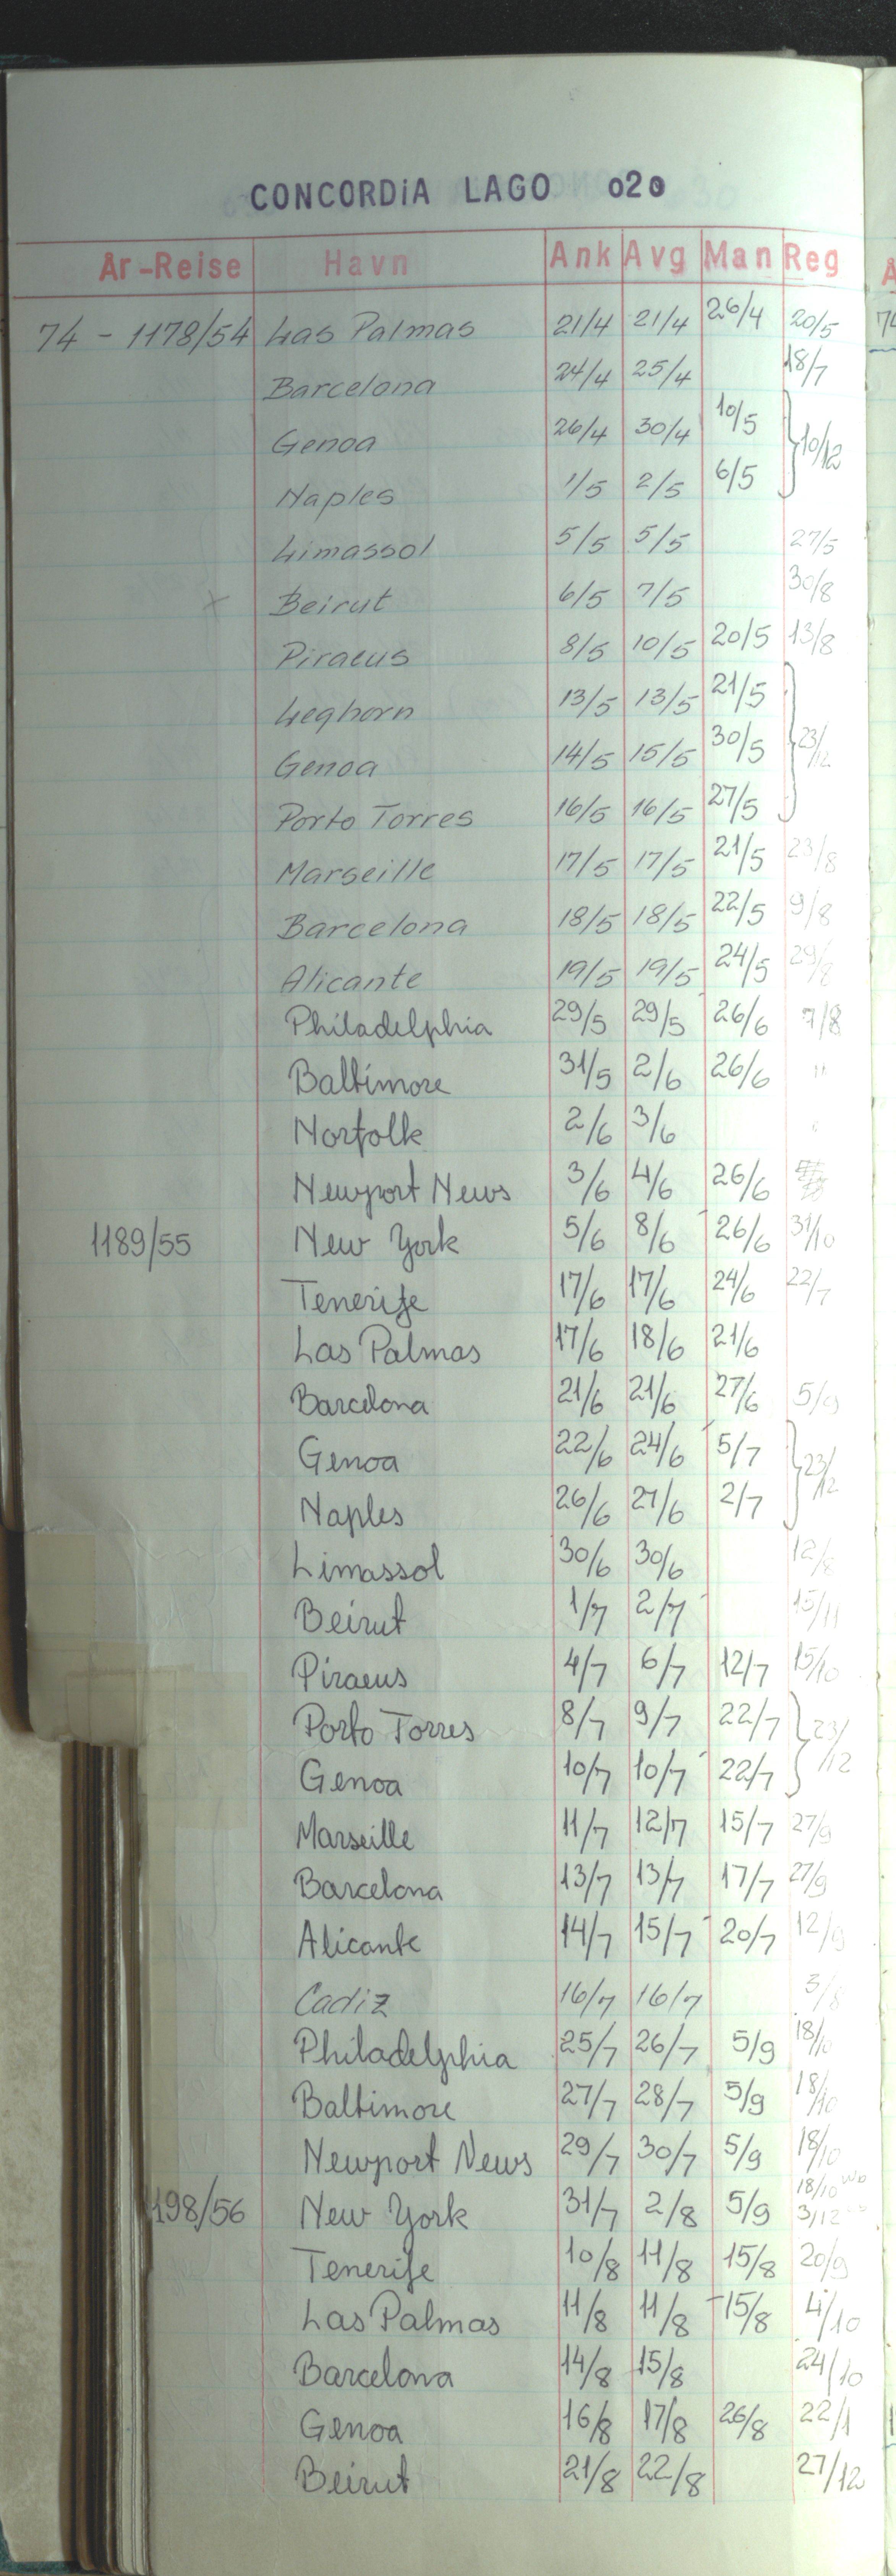 CONCORDiA LAGO 020
År-Reise Havn Ank Avg Man Reg
74 - 1178/54 Las Palmas 21/4 21/4 26/4 20/5
Barcelona 24/4 25/4 18/7
Genoa 26/4 30/4 10/5 } 10/12
Naples 1/5 2/5 6/5
Limassol 5/5 5/5 27/5
x Beirut 6/5 7/5 30/8
Piraeus 8/5 10/5 20/5 13/8
Leghorn 13/5 13/5 21/5
Genoa 14/5 15/5 30/5 } 23/12
Porto Torres 16/5 16/5 27/5
Marseille 17/5 17/5 21/5 23/8
Barcelona 18/5 18/5 22/5 9/8
Alicante 19/5 19/5 24/5 29/8
Philadelphia 29/5 29/5 26/6 7/8
Baltimore 31/5 2/6 26/6 "
Norfolk 2/6 3/6
Newport News 3/6 4/6 26/6
1189/55 New York 5/6 8/6 26/6 31/10
Tenerife 17/6 17/6 24/6 22/7
Las Palmas 17/6 18/6 21/6
Barcelona 21/6 21/6 27/6 5/9
Genoa 22/6 24/6 5/7 } 23/12
Naples 26/6 27/6 2/7
Limassol 30/6 30/6 12/8
Beirut 1/7 2/7 15/11
Piraeus 4/7 6/7 12/7 15/10
Porto Torres 8/7 9/7 22/7 } 23/12
Genoa 10/7 10/7 22/7
Marseille 11/7 12/7 15/7 27/9
Barcelona 13/7 13/7 17/7 27/9
Alicante 14/7 15/7 20/7 12/9
Cadiz 16/7 16/7 3/8
Philadelphia 25/7 26/7 5/9 18/10
Baltimore 27/7 28/7 5/9 18/10
Newport News 29/7 30/7 5/9 18/10
18/10
198/56 New York 31/7 2/8 5/9 3/12
Tenerife 10/8 11/8 15/8 20/9
Las Palmas 11/8 11/8 15/8 4/10
Barcelona 14/8 15/8 24/10
Genoa 16/8 17/8 26/8 22/1
Beirut 21/8 22/8 27/12